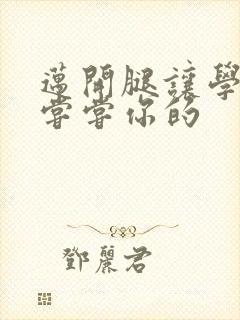 邁開腿讓學
嘗嘗你的
鄧麗君